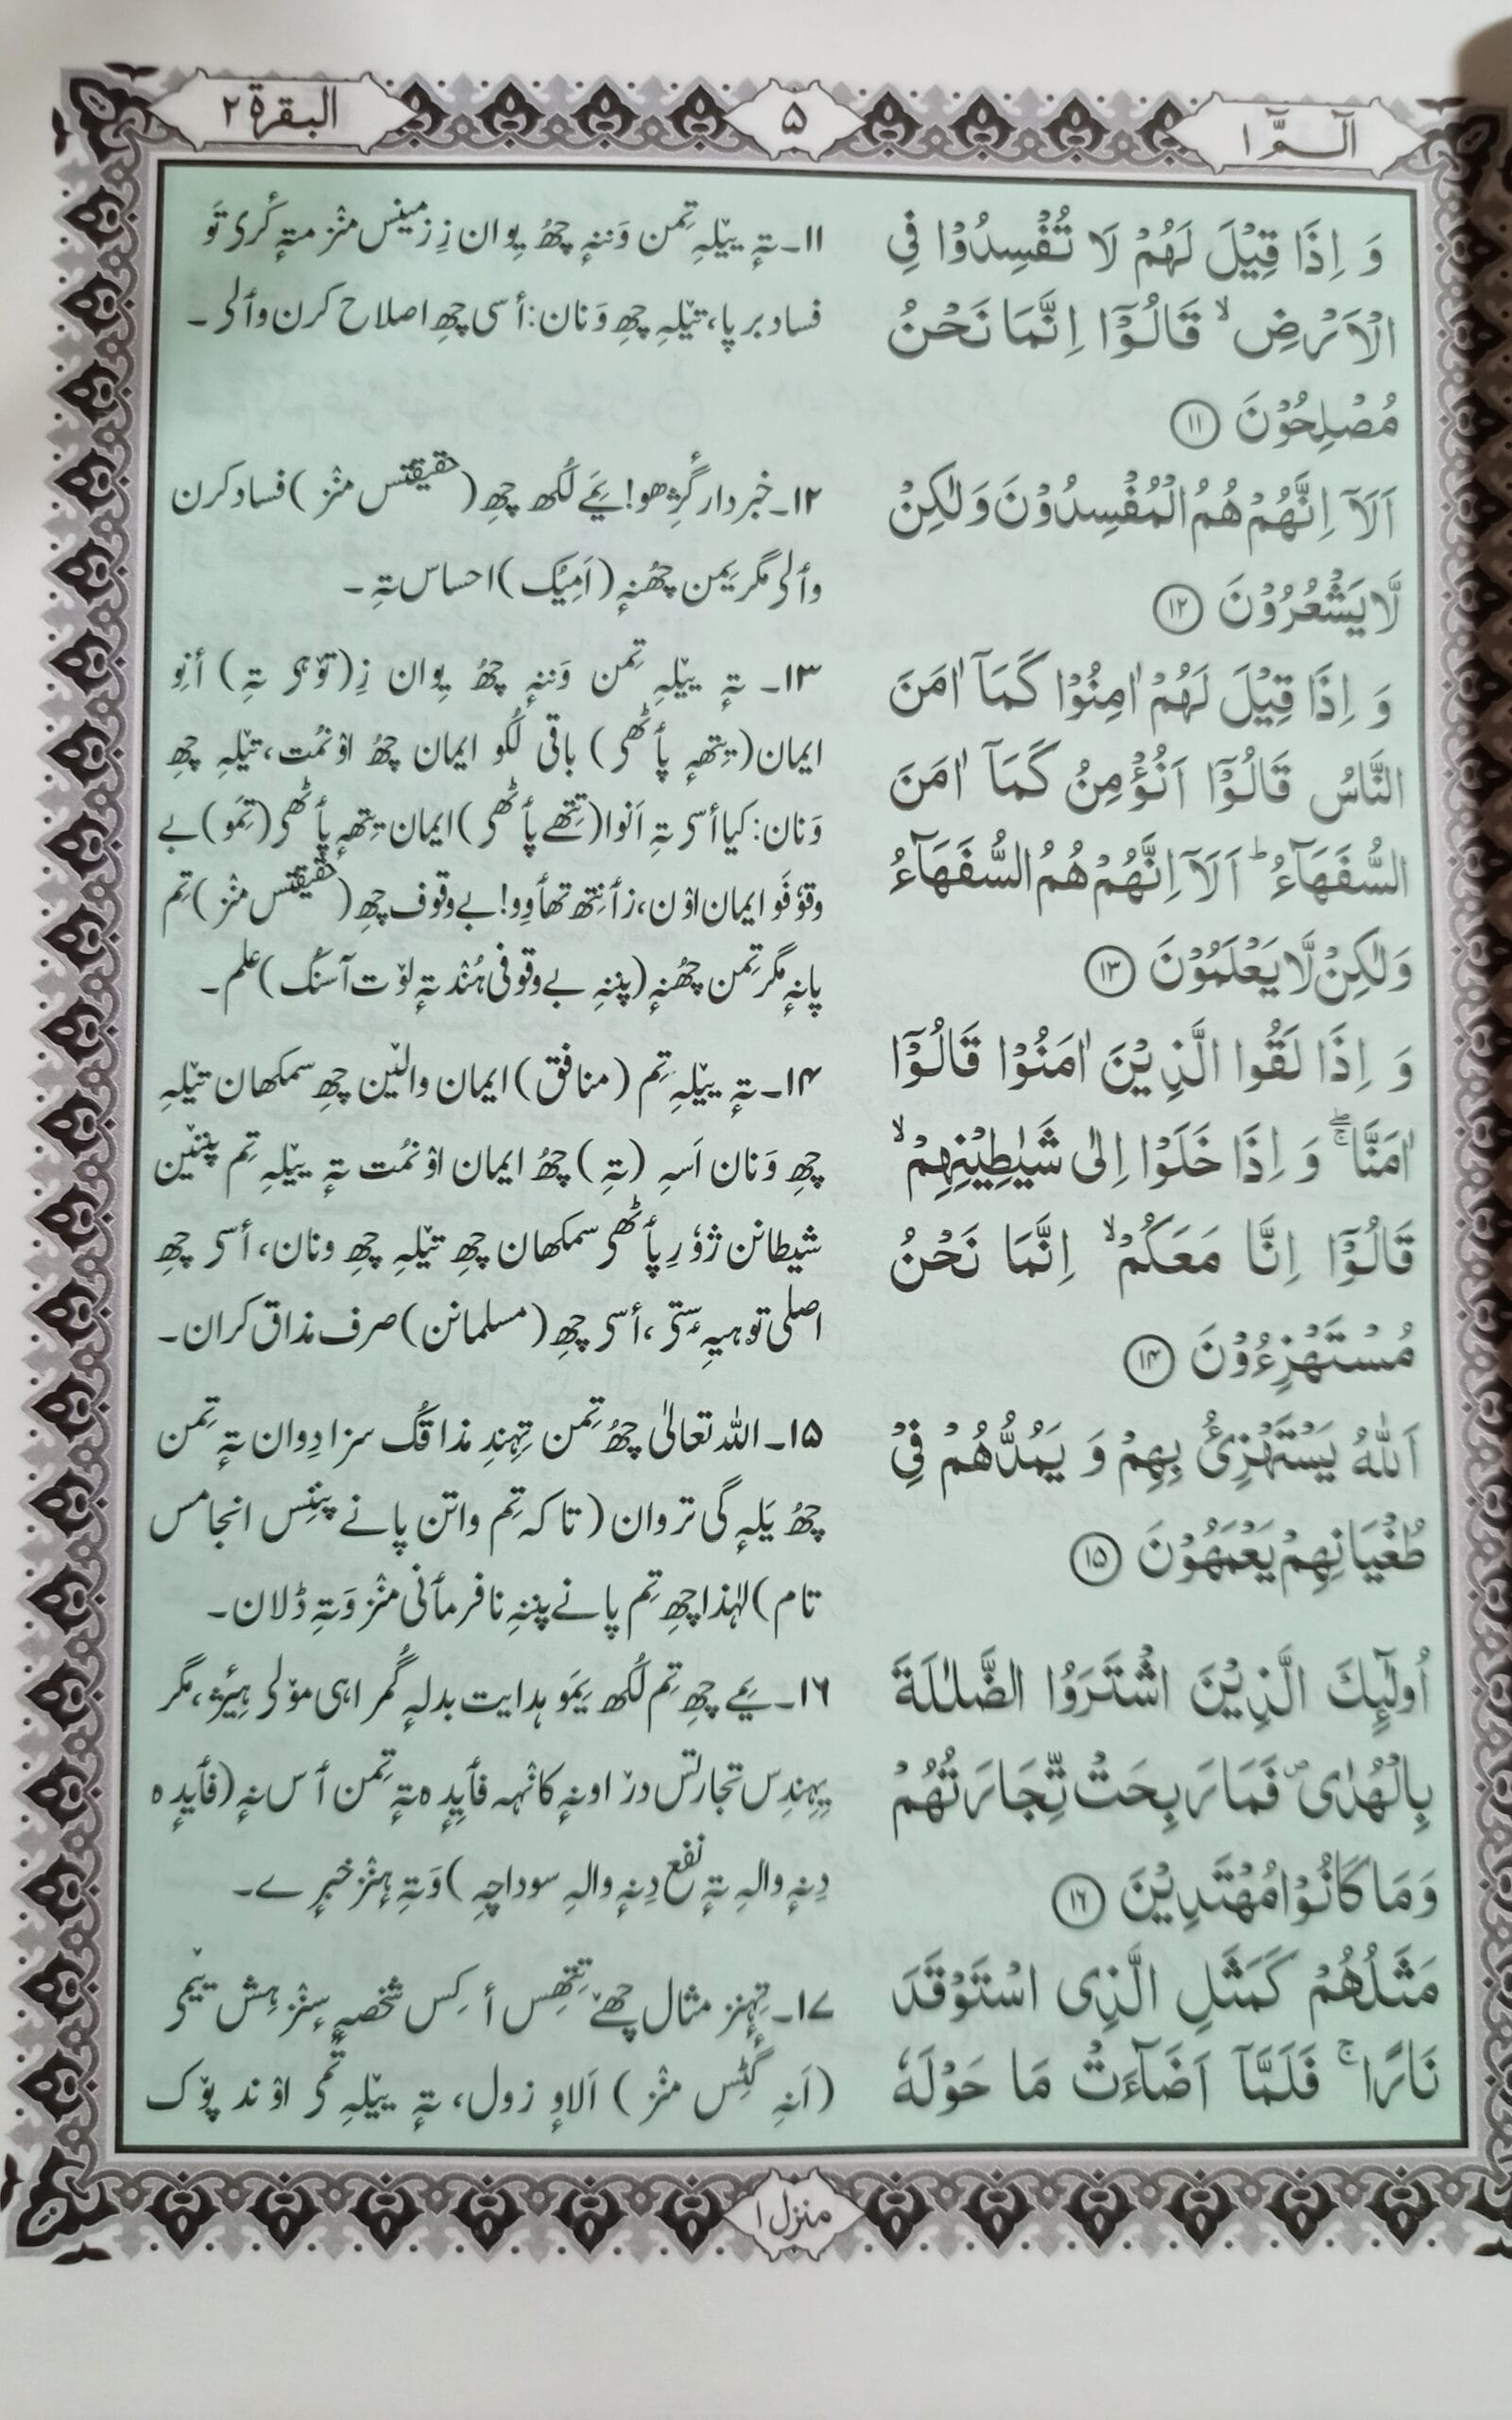 الٓـمّٓ ۱
۵
البقرة ۲
وَ اِذَا قِيْلَ لَهُمْ لَا تُفْسِدُوْا فِي
الْاَرْضِ ۙ قَالُوْٓا اِنَّمَا نَحْنُ
مُصْلِحُوْنَ ۱۱
اَلَآ اِنَّهُمْ هُمُ الْمُفْسِدُوْنَ وَلٰكِنْ
لَّا يَشْعُرُوْنَ ۱۲
وَ اِذَا قِيْلَ لَهُمْ اٰمِنُوْا كَمَآ اٰمَنَ
النَّاسُ قَالُوْٓا اَنُؤْمِنُ كَمَآ اٰمَنَ
السُّفَهَآءُ ؕ اَلَآ اِنَّهُمْ هُمُ السُّفَهَآءُ
وَلٰكِنْ لَّا يَعْلَمُوْنَ ۱۳
وَ اِذَا لَقُوا الَّذِيْنَ اٰمَنُوْا قَالُوْٓا
اٰمَنَّا ۚۖ وَ اِذَا خَلَوْا اِلٰى شَيٰطِيْنِهِمْ ۙ
قَالُوْٓا اِنَّا مَعَكُمْ ۙ اِنَّمَا نَحْنُ
مُسْتَهْزِءُوْنَ ۱۴
اَللّٰهُ يَسْتَهْزِئُ بِهِمْ وَ يَمُدُّهُمْ فِيْ
طُغْيَانِهِمْ يَعْمَهُوْنَ ۱۵
اُولٰٓئِكَ الَّذِيْنَ اشْتَرَوُا الضَّلٰلَةَ
بِالْهُدٰى ۪ فَمَا رَبِحَتْ تِّجَارَتُهُمْ
وَمَا كَانُوْا مُهْتَدِيْنَ ۱۶
مَثَلُهُمْ كَمَثَلِ الَّذِى اسْتَوْقَدَ
نَارًا ۚ فَلَمَّآ اَضَآءَتْ مَا حَوْلَهٗ
۱۱۔ تہٕ ییٚلہِ تِمن وَننہٕ چھُ یِوان زِ زمینس منٛز متہٕ کٔری تَو
فساد برپا، تیٚلہِ چھِ وَنان: أسی چھِ اصلاح کرن وٲلی۔
۱۲۔ خبردار گٔژھو! یَمے لُکھ چھِ (حقیقتس منٛز) فساد کرن
وٲلی مگر یَمن چھُنہٕ (اَمِیُک) احساس تہِ۔
۱۳۔ تہٕ ییٚلہِ تِمن وَننہٕ چھُ یِوان زِ (توٚہی تہِ) أنِو
ایمان (یِتھہٕ پٲٹھی) باقی لُکو ایمان چھُ اوٚنمُت، تیٚلہِ چھِ
وَنان: کیا أسی تہِ اَنوا (تِتھے پٲٹھی) ایمان یِتھہٕ پٲٹھی (تِمَو) بے
وقوٗفَو ایمان اوٚن، زٲنِتھ تھٲوِو! بے وقوف چھِ (حقیقتس منٛز) تِم
پانہٕ مگر تِمن چھُنہٕ (پننہِ بے وقوفی ہُنٛد تہٕ لوٚت آسنُک) علم۔
۱۴۔ تہٕ ییٚلہِ تِم (منافق) ایمان والیٚن چھِ سمکھان تیٚلہِ
چھِ وَنان اَسہِ (تہِ) چھُ ایمان اوٚنمُت تہٕ ییٚلہِ تِم پننیٚن
شیطانن ژوٗرِ پٲٹھی سمکھان چھِ تیٚلہِ چھِ ونان، أسی چھِ
اصلی توہیہِ سٕتی، أسی چھِ (مسلمانن) صرف مذاق کران۔
۱۵۔ اللہ تعالیٰ چھُ تِمن تِہِندِ مذاقُک سزا دِوان تہٕ تِمن
چھُ یَلہٕ گی تروان (تاکہ تِم واتن پانے پننِس انجامس
تام) لہٰذا چھِ تِم پانے پننہِ نافرمٲنی منٛز وَتہِ ڈلان۔
۱۶۔ یَمے چھِ تِم لُکھ یَمَو ہدایت بدلہٕ گُمراہی موٚلی ہیٚژ، مگر
یِہِندِس تجارتس درٛاو نہٕ کانٛہہ فٲیدٕہ تہٕ تِمن ٲس نہٕ (فٲیدٕہ
دِنہٕ والہِ تہٕ نفع دِنہٕ والہِ سوداچہِ) وَتہِ ہٕنٛز خبرٕے۔
۱۷۔ تِہٕنز مثال چھےٚ تِتھِس أکِس شخصہٕ سٕنٛز ہِش یٚیمی
(اَنہِ گٔٹِس منٛز) اَلاوٕ زول، تہٕ ییٚلہِ تٔمی اوٚند پوٚک
منزل ۱